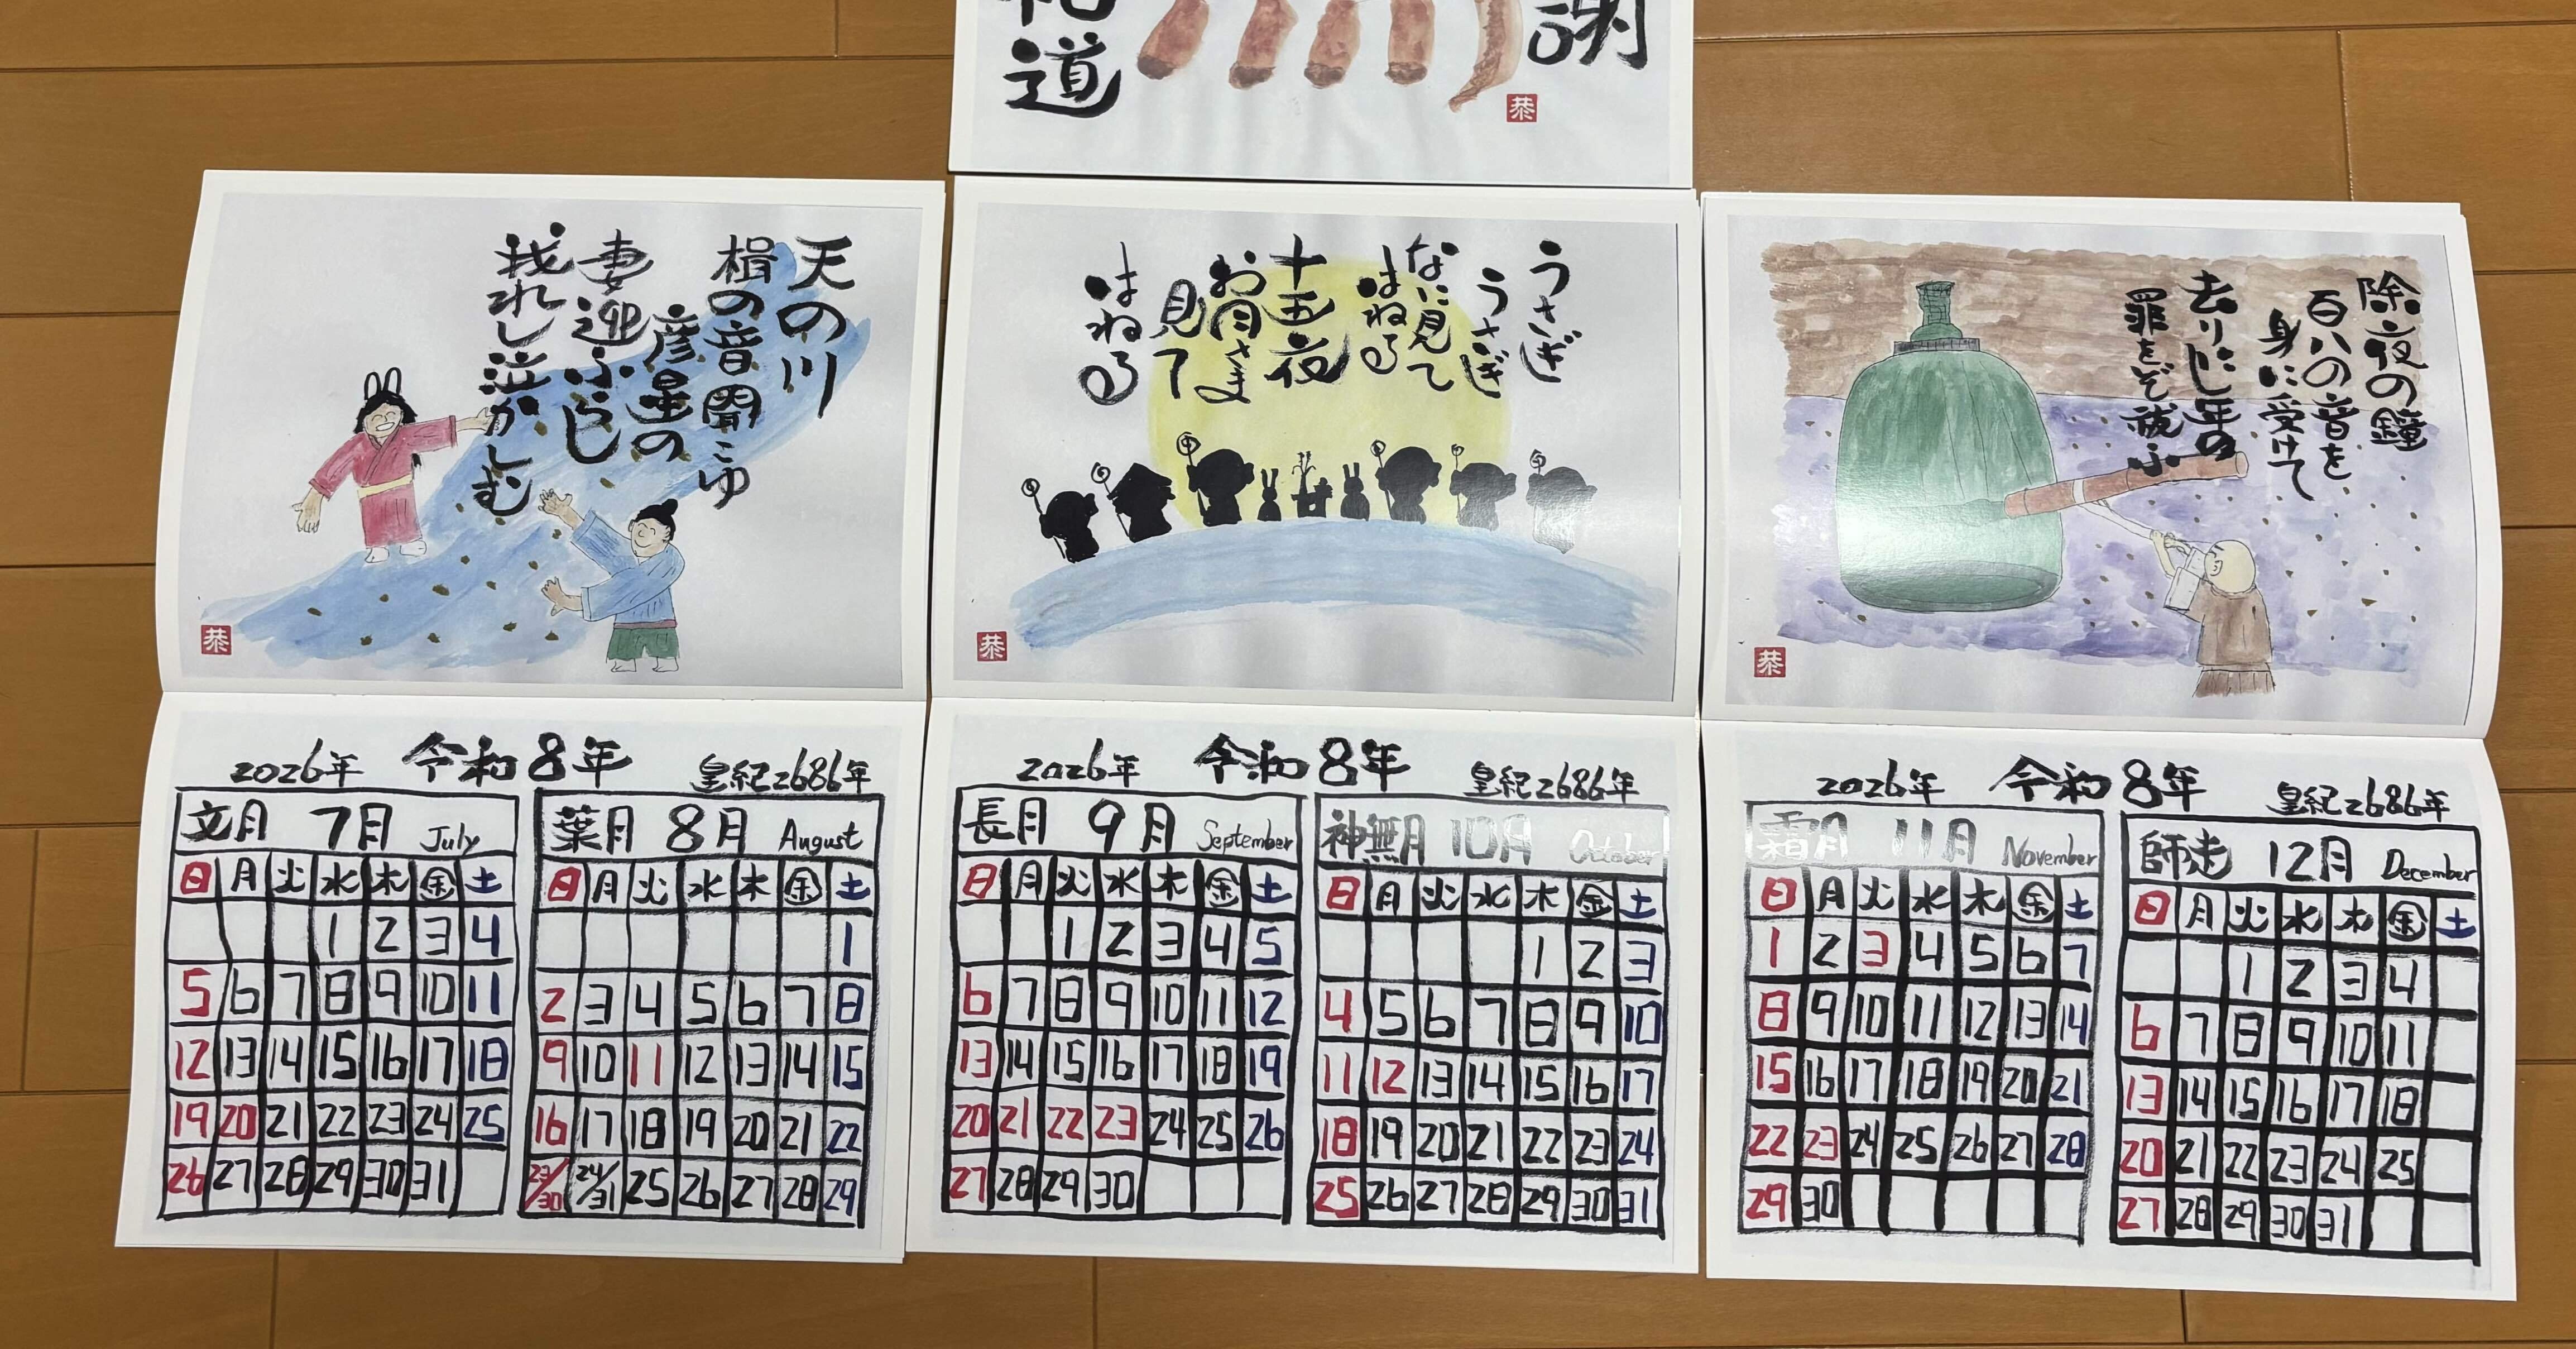 道
謝
恭
天の川
楫の音聞こゆ
彦星の
妻迎ふらし
我れし泣かしむ
恭
うさぎ
うさぎ
なに見て
はねる
十五夜
お月さま
見て
はねる
恭
除夜の鐘
百八の音を
身に受けて
去りにし年の
罪をぞ祓ふ
恭
2026年 令和8年 皇紀2686年
文月 7月 July
日 月 火 水 木 金 土
1 2 3 4
5 6 7 8 9 10 11
12 13 14 15 16 17 18
19 20 21 22 23 24 25
26 27 28 29 30 31
葉月 8月 August
日 月 火 水 木 金 土
1
2 3 4 5 6 7 8
9 10 11 12 13 14 15
16 17 18 19 20 21 22
23/30 24/31 25 26 27 28 29
2026年 令和8年 皇紀2686年
長月 9月 September
日 月 火 水 木 金 土
1 2 3 4 5
6 7 8 9 10 11 12
13 14 15 16 17 18 19
20 21 22 23 24 25 26
27 28 29 30
神無月 10月 October
日 月 火 水 木 金 土
1 2 3
4 5 6 7 8 9 10
11 12 13 14 15 16 17
18 19 20 21 22 23 24
25 26 27 28 29 30 31
2026年 令和8年 皇紀2686年
霜月 11月 November
日 月 火 水 木 金 土
1 2 3 4 5 6 7
8 9 10 11 12 13 14
15 16 17 18 19 20 21
22 23 24 25 26 27 28
29 30
師走 12月 December
日 月 火 水 木 金 土
1 2 3 4
6 7 8 9 10 11
13 14 15 16 17 18
20 21 22 23 24 25
27 28 29 30 31